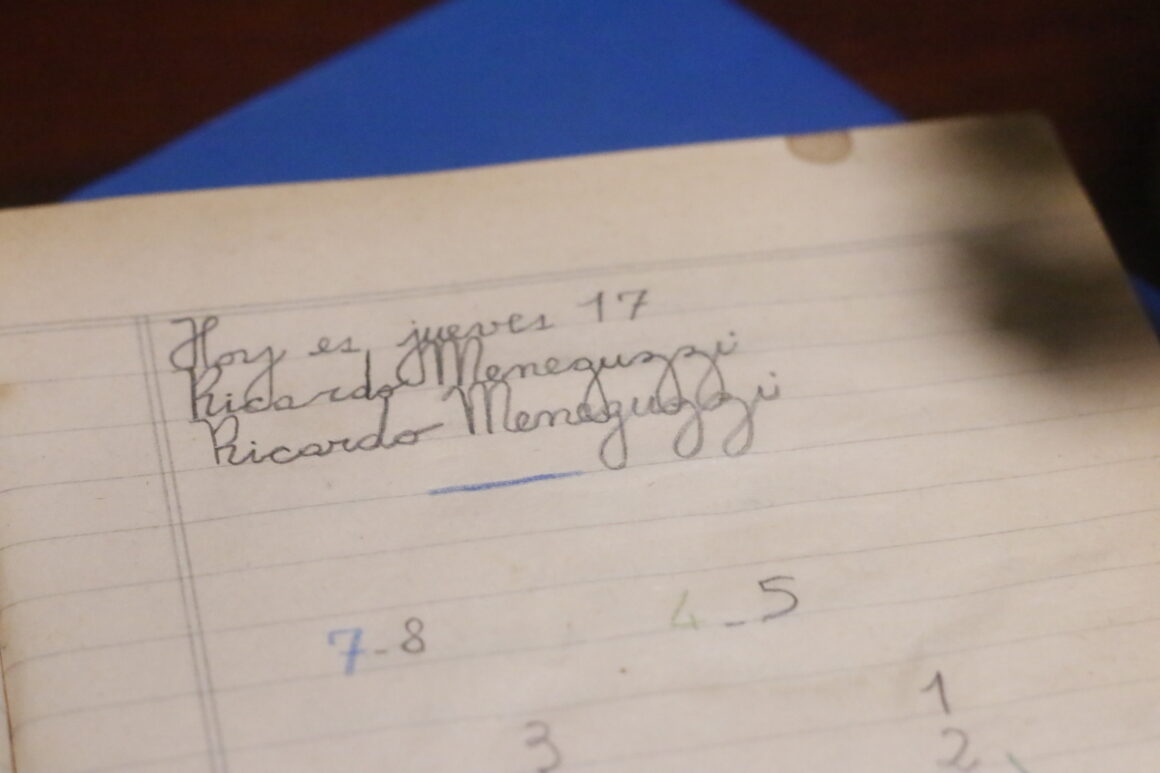 Hoy es jueves 17
Ricardo Meneguzzi
Ricardo Meneguzzi
7-8 4-5
1
3 2